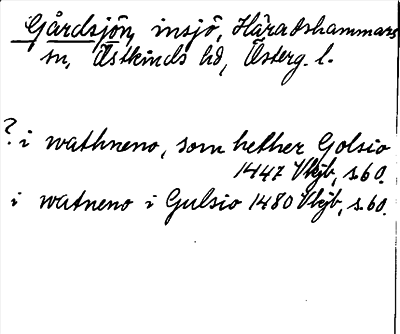 Gårdsjön, insjö, Häradshammars
sn, Östkinds hd, Österg. l.
? i wathneno, som hether Golsio
1447 Vkjb, s. 60.
i watneno i Gulsio 1480 Vkjb, s. 60.